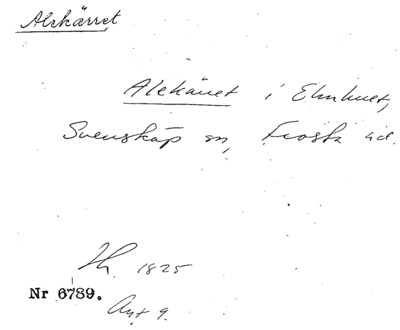 Alekärret
Alekärret i Elmhult,
Svensköp sn, Frosta hd.
1825
Nr 6789.
Ant 9.